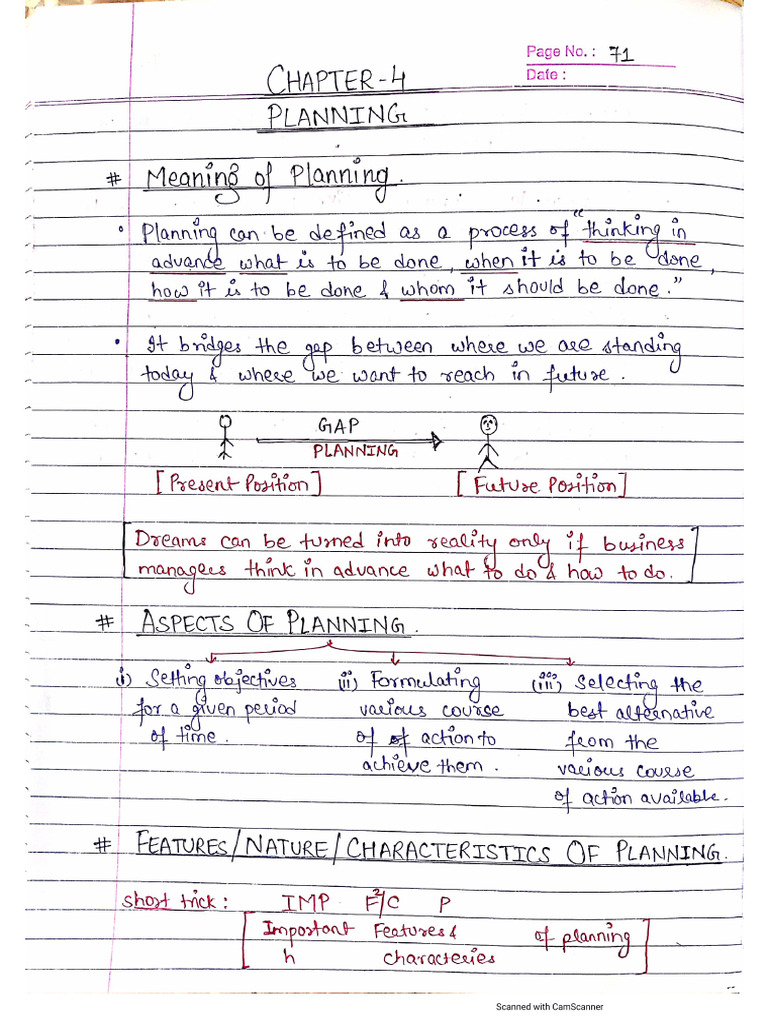 Page No. : 71
Date :
CHAPTER-4
PLANNING
# Meaning of Planning.
• Planning can be defined as a process of "thinking in
advance what is to be done, when it is to be done,
how it is to be done & whom it should be done."
• It bridges the gap between where we are standing
today & where we want to reach in future.
GAP
PLANNING
[Present Position] [Future Position]
[Dreams can be turned into reality only if business
managers think in advance what to do & how to do.]
# ASPECTS OF PLANNING.
i) Setting objectives ii) Formulating (iii) Selecting the
for a given period various course best alternative
of time. of of action to from the
achieve them. various course
of action available.
# FEATURES/NATURE/CHARACTERISTICS OF PLANNING.
short trick: IMP F²/C P
[Important Features & of planning
h characteries]
Scanned with CamScanner